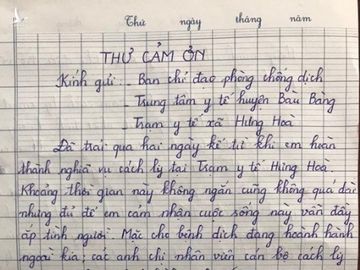 Thứ ngày tháng năm
THƯ CẢM ƠN
Kính gửi: - Ban chỉ đạo phòng chống dịch
- Trung tâm y tế huyện Bàu Bàng
- Trạm y tế xã Hưng Hoà
Đã trải qua hai ngày kể từ khi em hoàn
thành nghĩa vụ cách ly tại Trạm y tế Hưng Hoà.
Khoảng thời gian này không ngắn cũng không quá dài
nhưng đủ để em cảm nhận cuộc sống này vẫn đầy
ắp tình người. Mặc cho bệnh dịch đang hoành hành
ngoài kia; các anh chị nhân viên cán bộ cách ly